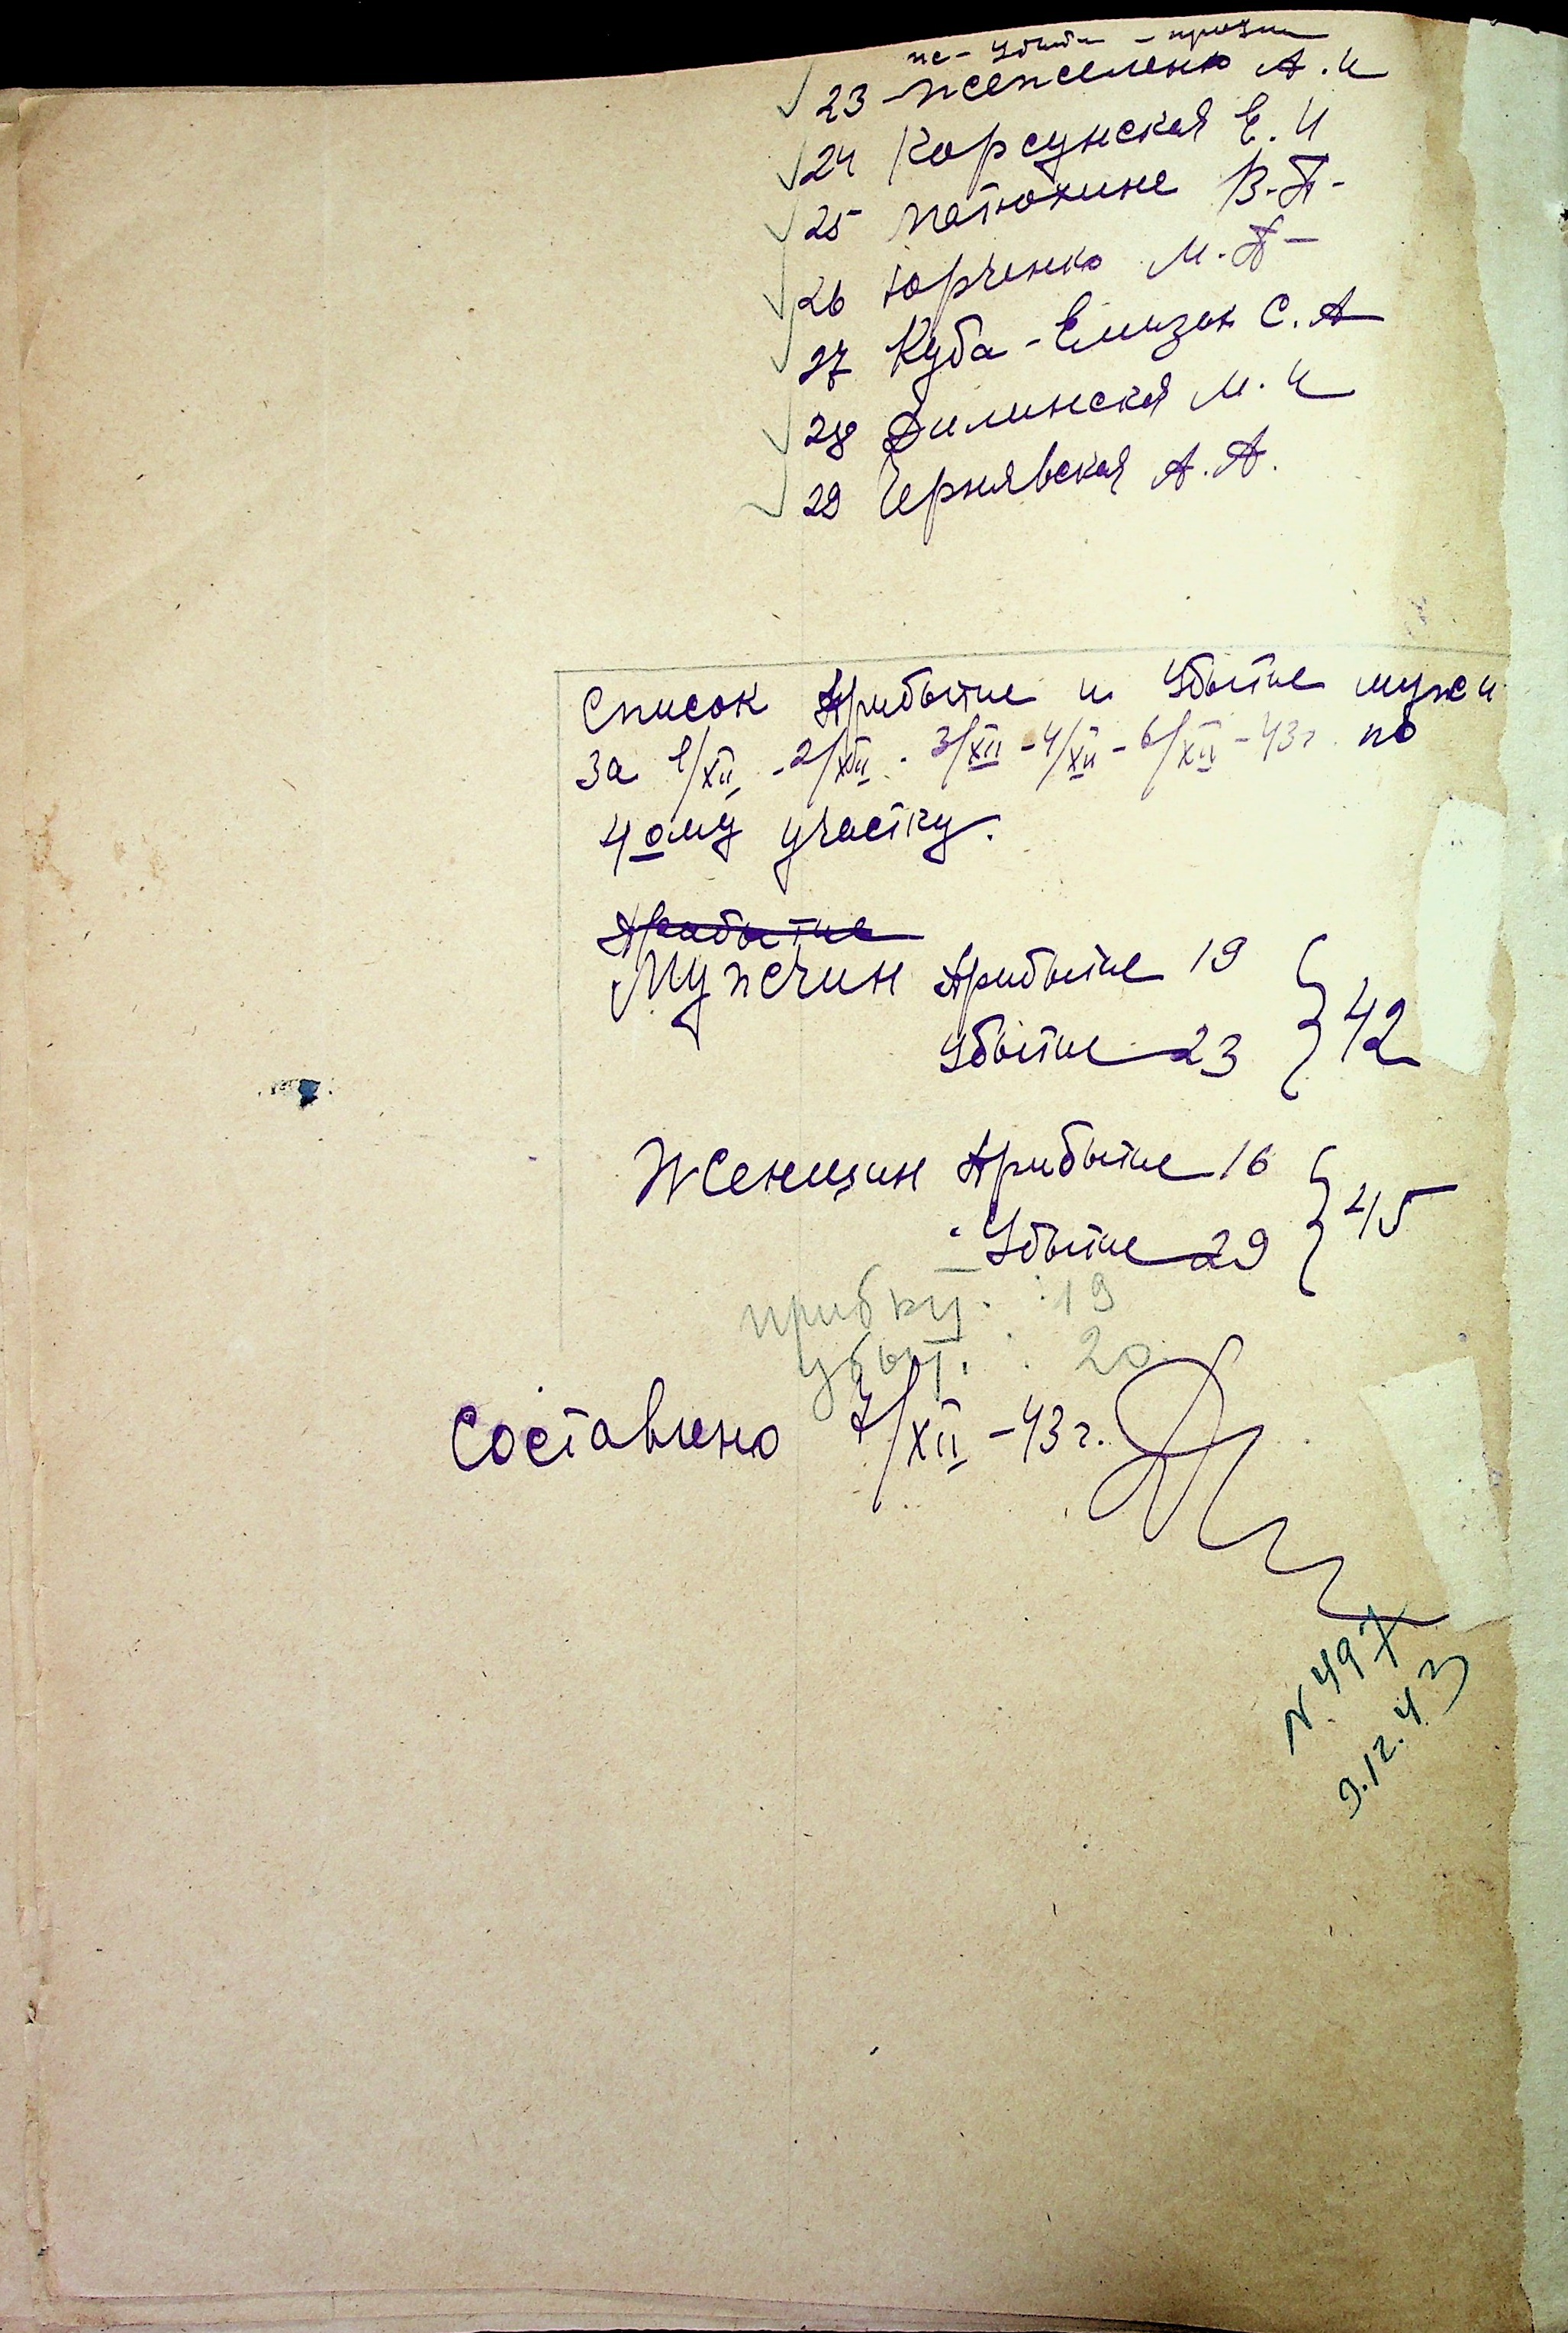 23 Жежеленко А.И
24 Корсунская Е.И
25 Матюхина В.П.
26 Юрченко М.П
27 Куба-Елизен С.А
28 Билинская М.И
29 Чернявская А.А.
Список Прибытие и Убытие мужчи
За 1/XII - 2/XII - 3/XII - 4/XII - 6/XII - 43г. по
4ому участку.
Прибытие
Мужчин Прибытие 19
Убытие 23 } 42
Женщин Прибытие 16
Убытие 29 } 45
прибыт. : 19
убыт. : 20
Составлено 7/XII - 43г.
N. 497
9.12.43